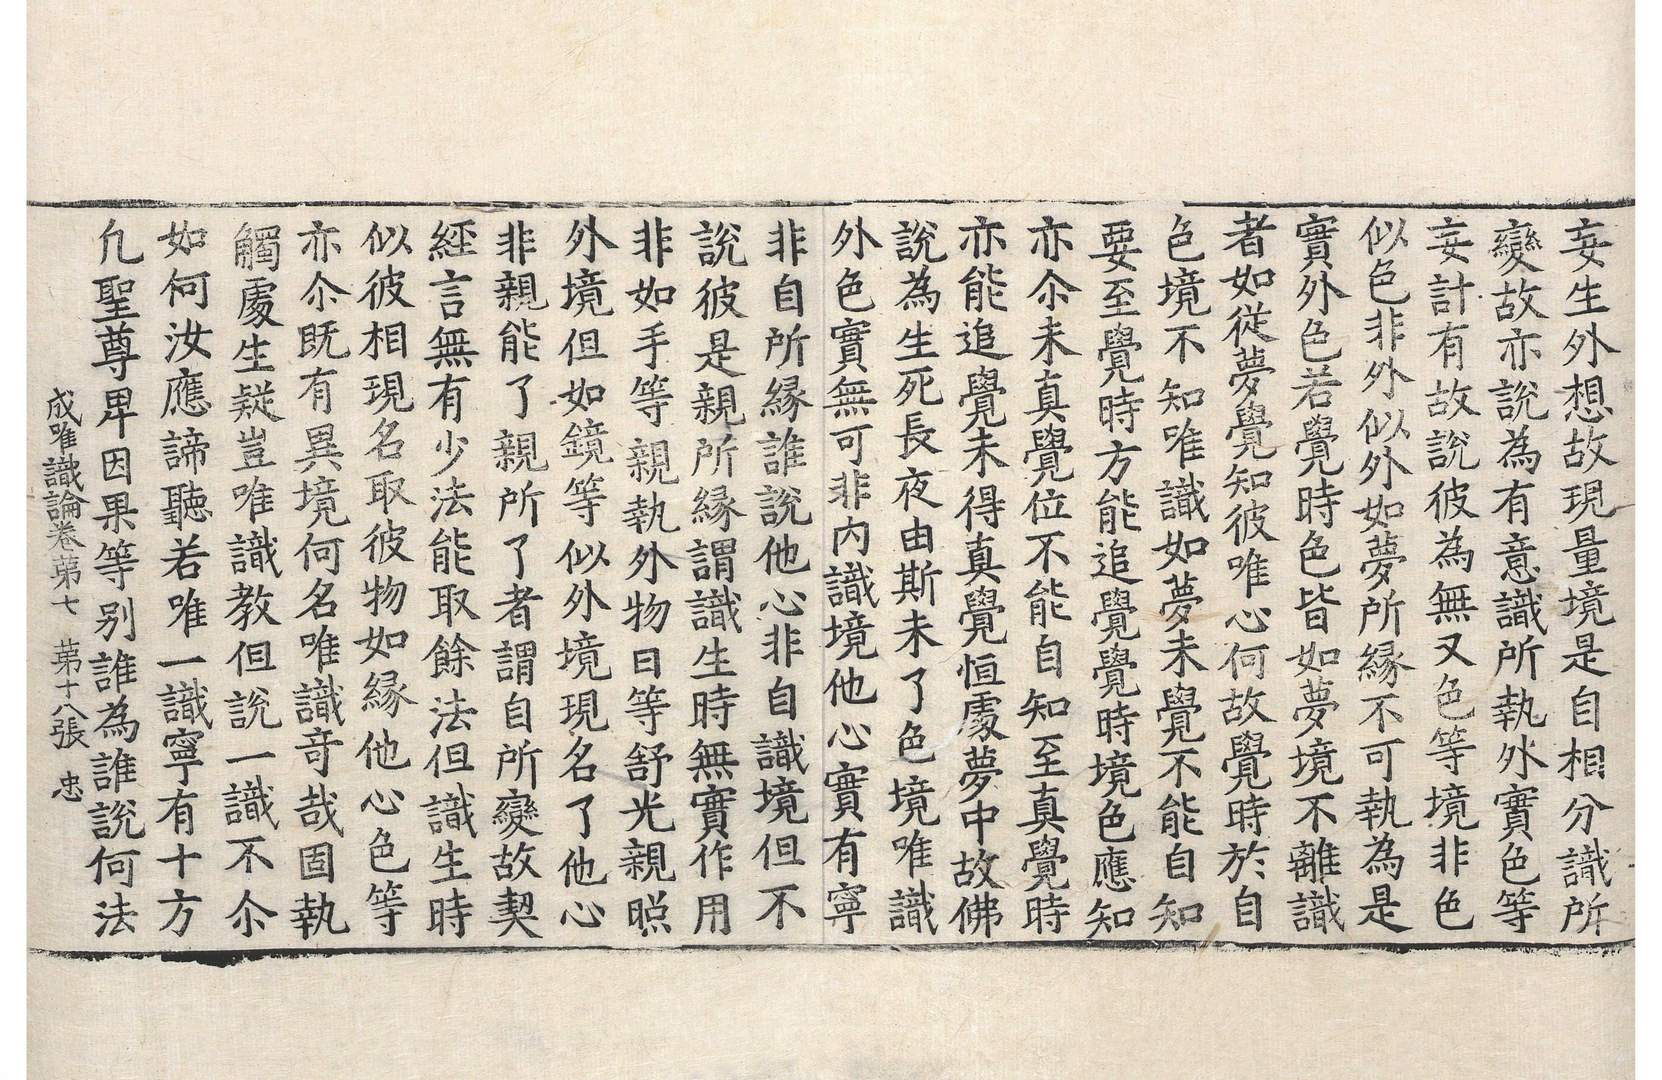 妄生外想故現量境是自相分識所
變故亦說為有意識所執外實色等
妄計有故說彼為無又色等境非色
似色非外似外如夢所縁不可執為是
實外色若覺時色皆如夢境不離識
者如從夢覺知彼唯心何故覺時於自
色境不知唯識如夢未覺不能自知
要至覺時方能追覺覺時境色應知
亦尒未真覺位不能自知至真覺時
亦能追覺未得真覺恒處夢中故佛
說為生死長夜由斯未了色境唯識
外色實無可非内識境他心實有寧
非自所縁誰說他心非自識境但不
說彼是親所縁謂識生時無實作用
非如手等親執外物日等舒光親照
外境但如鏡等似外境現名了他心
非親能了親所了者謂自所變故契
經言無有少法能取餘法但識生時
似彼相現名取彼物如縁他心色等
亦尒既有異境何名唯識奇哉固執
觸處生疑豈唯識教但說一識不尒
如何汝應諦聽若唯一識寧有十方
凡聖尊卑因果等别誰為誰說何法
成唯識論卷苐七 苐十八張 忠